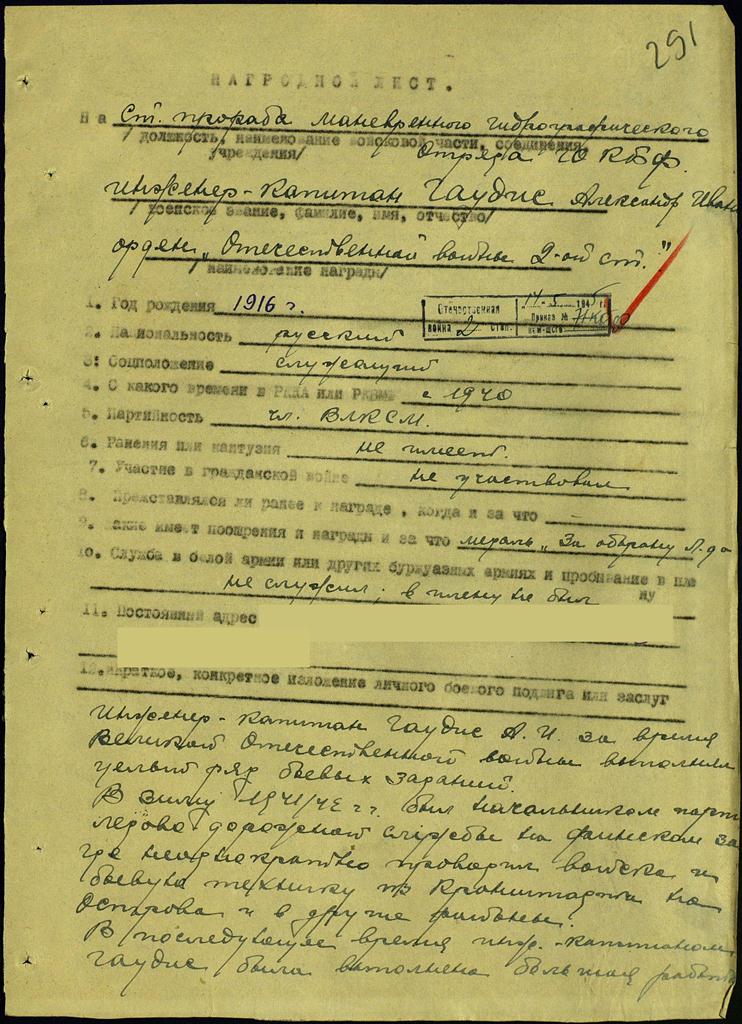 291
НАГРОДНОЙ ЛИСТ.
На Ст. прораба маневренного гидрографического
/должность, наименование воисковой части, соединения,
учреждения/ Отряда ГО КБФ.
Инженер-капитан Гаудис Александр Иван
/военское звание, фамилие, имя, отчество/
орден "Отечественной войны 2-ой ст."
/наименотание награды/
1. Год рождения 1916 г.
Отечественная война 2 степ.
14-5 1945 г.
Приказ №
2. Национальность русский
3. Соцположение служащий
4. С какого времени в РККА или РКВМФ с 1940
5. Партийность чл. ВЛКСМ.
6. Ранения или контузия не имеет.
7. Участие в гражданской войне не участвовал
8. Представлялся ли ранее к награде, когда и за что
9. Какие имеет поощрения и награды и за что медаль "За оборону Л-да
10. Служба в белой армии или других буржуазных армиях и пробивание в пле
не служил; в плену не был ну
11. Постоянный адрес
12. Краткое, конкретное изложение личного боевого подвига или заслуг
Инженер-капитан Гаудис А.И. за время
Великой Отечественной войны выполнил
целый ряд боевых заданий.
В зиму 1941/42 г.г. был начальником парт
ледово-дорожной службы на финском за
где неоднократно проводил войска и
боевую технику из Кронштадта на
Острова и в другие районы.
В последующее время инж.-капитаном
Гаудис была выполнена большая работа